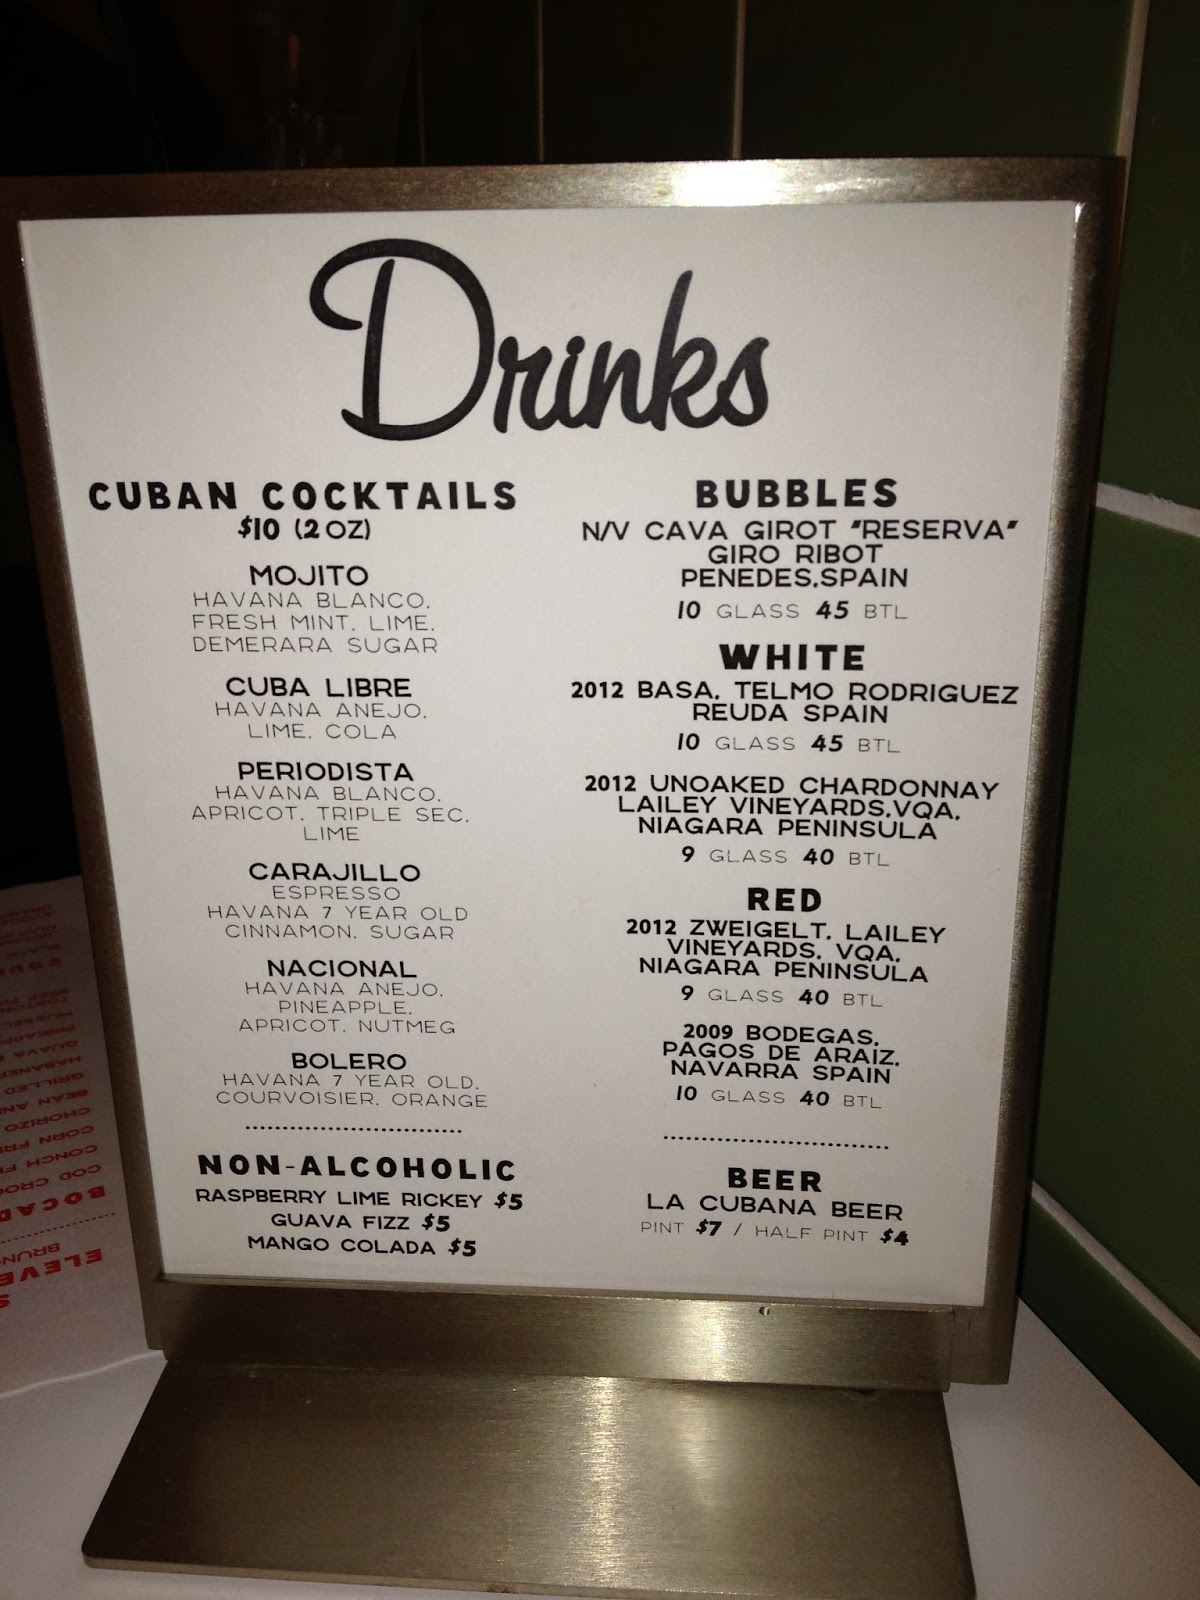 Drinks
CUBAN COCKTAILS
$10 (2 OZ)
MOJITO
HAVANA BLANCO,
FRESH MINT, LIME,
DEMERARA SUGAR
CUBA LIBRE
HAVANA ANEJO,
LIME, COLA
PERIODISTA
HAVANA BLANCO,
APRICOT, TRIPLE SEC,
LIME
CARAJILLO
ESPRESSO
HAVANA 7 YEAR OLD
CINNAMON, SUGAR
NACIONAL
HAVANA ANEJO,
PINEAPPLE,
APRICOT, NUTMEG
BOLERO
HAVANA 7 YEAR OLD,
COURVOISIER, ORANGE
NON-ALCOHOLIC
RASPBERRY LIME RICKEY $5
GUAVA FIZZ $5
MANGO COLADA $5
BUBBLES
N/V CAVA GIROT "RESERVA"
GIRO RIBOT
PENEDES, SPAIN
10 GLASS 45 BTL
WHITE
2012 BASA, TELMO RODRIGUEZ
REUDA SPAIN
10 GLASS 45 BTL
2012 UNOAKED CHARDONNAY
LAILEY VINEYARDS, VQA,
NIAGARA PENINSULA
9 GLASS 40 BTL
RED
2012 ZWEIGELT, LAILEY
VINEYARDS, VQA,
NIAGARA PENINSULA
9 GLASS 40 BTL
2009 BODEGAS,
PAGOS DE ARAIZ,
NAVARRA SPAIN
10 GLASS 40 BTL
BEER
LA CUBANA BEER
PINT $7 / HALF PINT $4